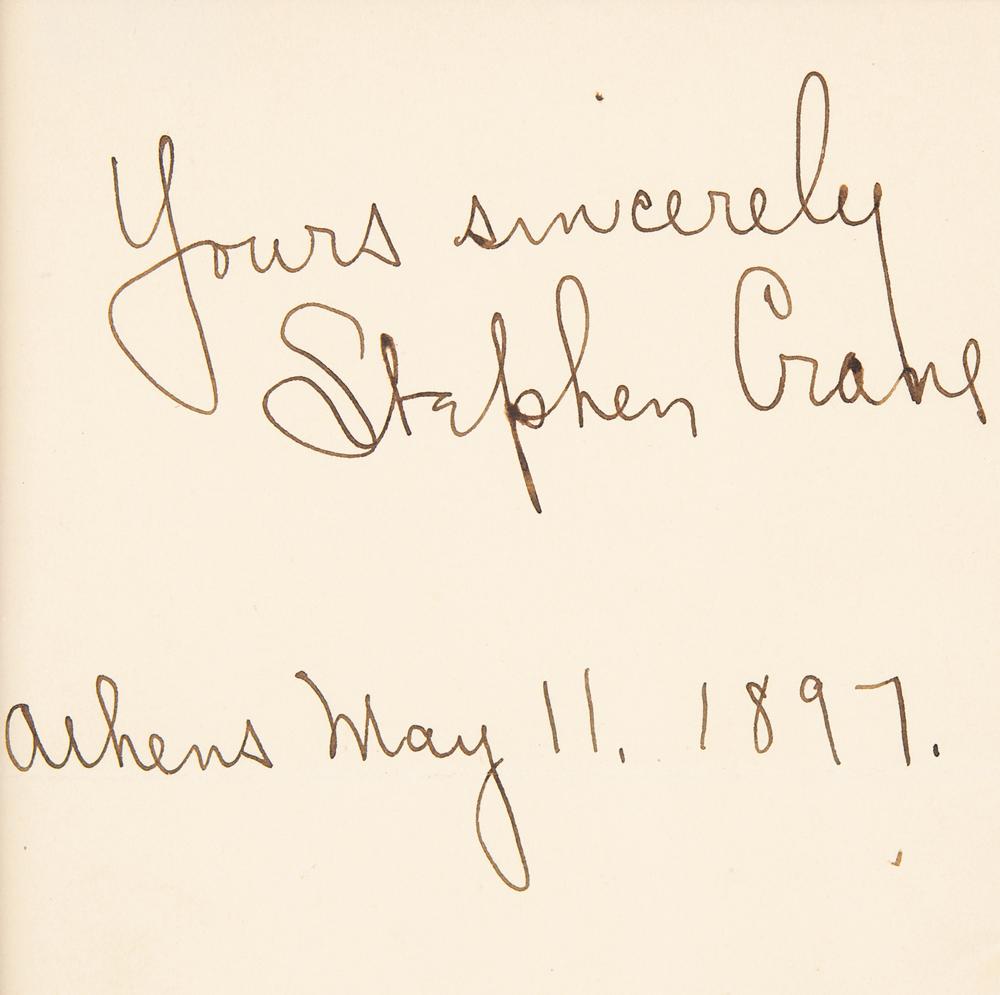 Yours sincerely
Stephen Crane
Athens May 11. 1897.